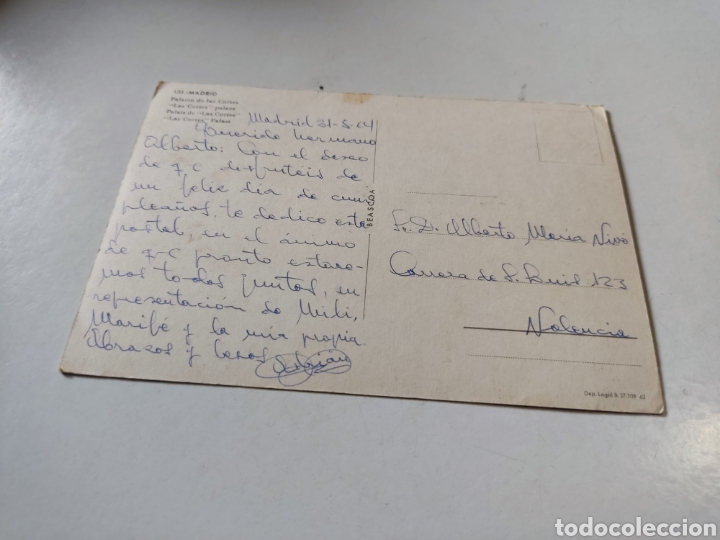 MADRID
Palacio de las Cortes
"Las Cortes" palace
Palais de "Las Cortes"
"Las Cortes" Palast
Madrid 21-5-64
Querido hermano
Alberto: Con el deseo
de q-e disfrutéis de
un feliz dia de cum
pleaños, te dedico esta
postal, en el ánimo
de q-e pronto estare-
mos to-dos juntos, en
representación de Mili,
Marifé y la mia propia.
Abrazos y besos
Adrián
BEASCOA
Sr. D. Alberto María Nivó
Carrera de S. Luis 123
Valencia
Dep. Legal B.
todocoleccion
todocoleccion.net